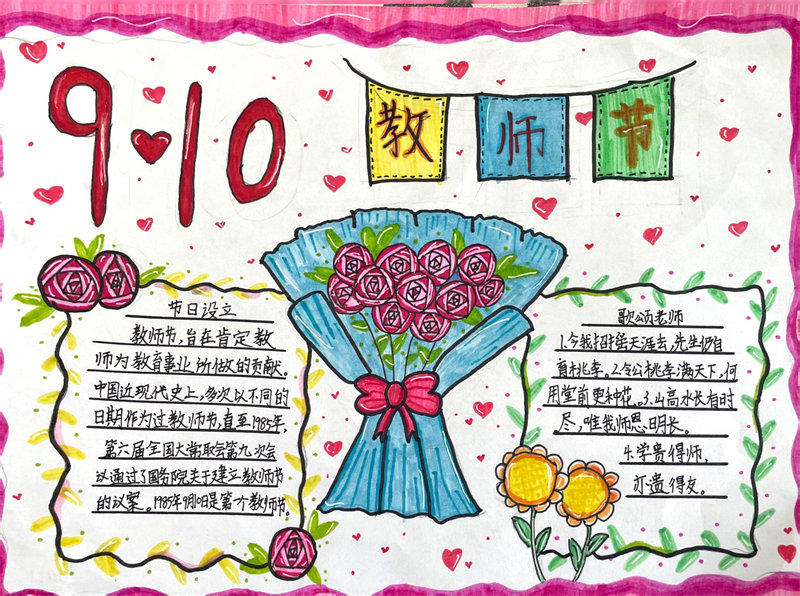 9·10
教师节
节日设立
教师节，旨在肯定教
师为教育事业所做的贡献。
中国近现代史上，多次以不同的
日期作为过教师节，直至1985年，
第六届全国大常取会第九次会
议通过了国务院关于建立教师节
的议案。1985年9月10日是第一个教师节。
歌颂老师
1.令我招摇天涯去，先生仍自
育桃李。2.令公桃李满天下，何
用堂前更种花。3.山高水长有时
尽，唯我师恩日月长。
4.学贵得师，
亦贵得友。